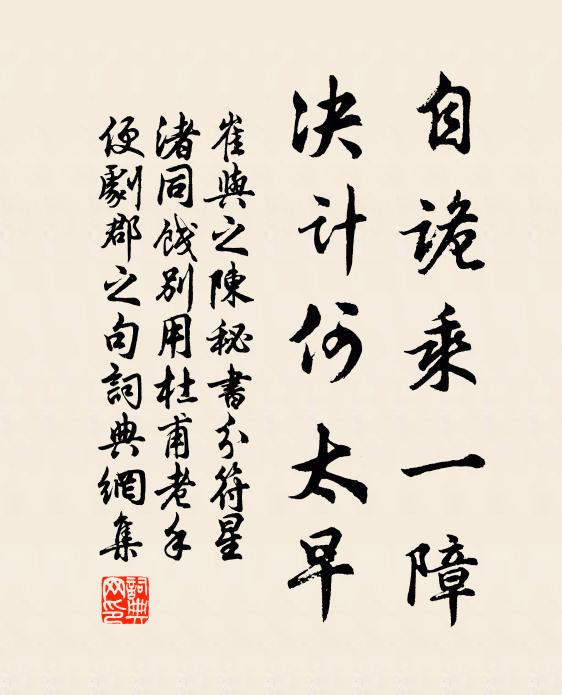 自詭乘一障
決計何太早
崔與之陳秘書分符星
渚同餞別用杜甫老手
便劇郡之句詞典網集
詞典網印